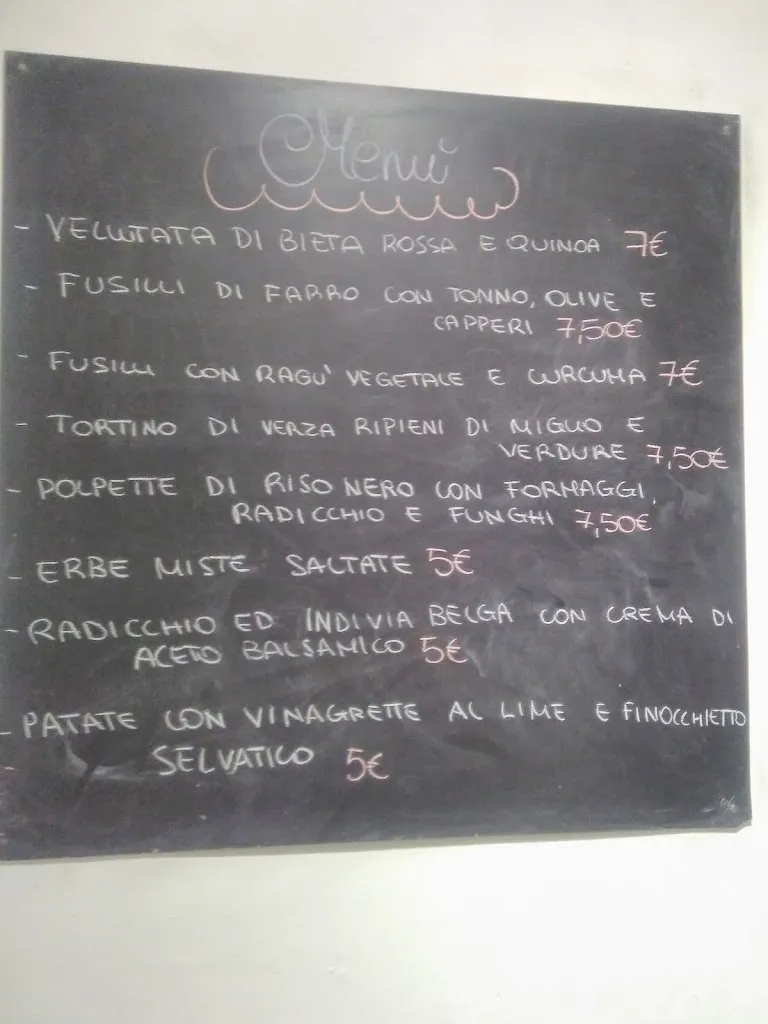 Menù
- VELLUTATA DI BIETA ROSSA E QUINOA 7€
- FUSILLI DI FARRO CON TONNO, OLIVE E
CAPPERI 7,50€
- FUSILLI CON RAGU' VEGETALE E CURCUMA 7€
- TORTINO DI VERZA RIPIENI DI MIGLIO E
VERDURE 7,50€
- POLPETTE DI RISO NERO CON FORMAGGI,
RADICCHIO E FUNGHI 7,50€
- ERBE MISTE SALTATE 5€
- RADICCHIO ED INDIVIA BELGA CON CREMA DI
ACETO BALSAMICO 5€
- PATATE CON VINAGRETTE AL LIME E FINOCCHIETTO
- SELVATICO 5€